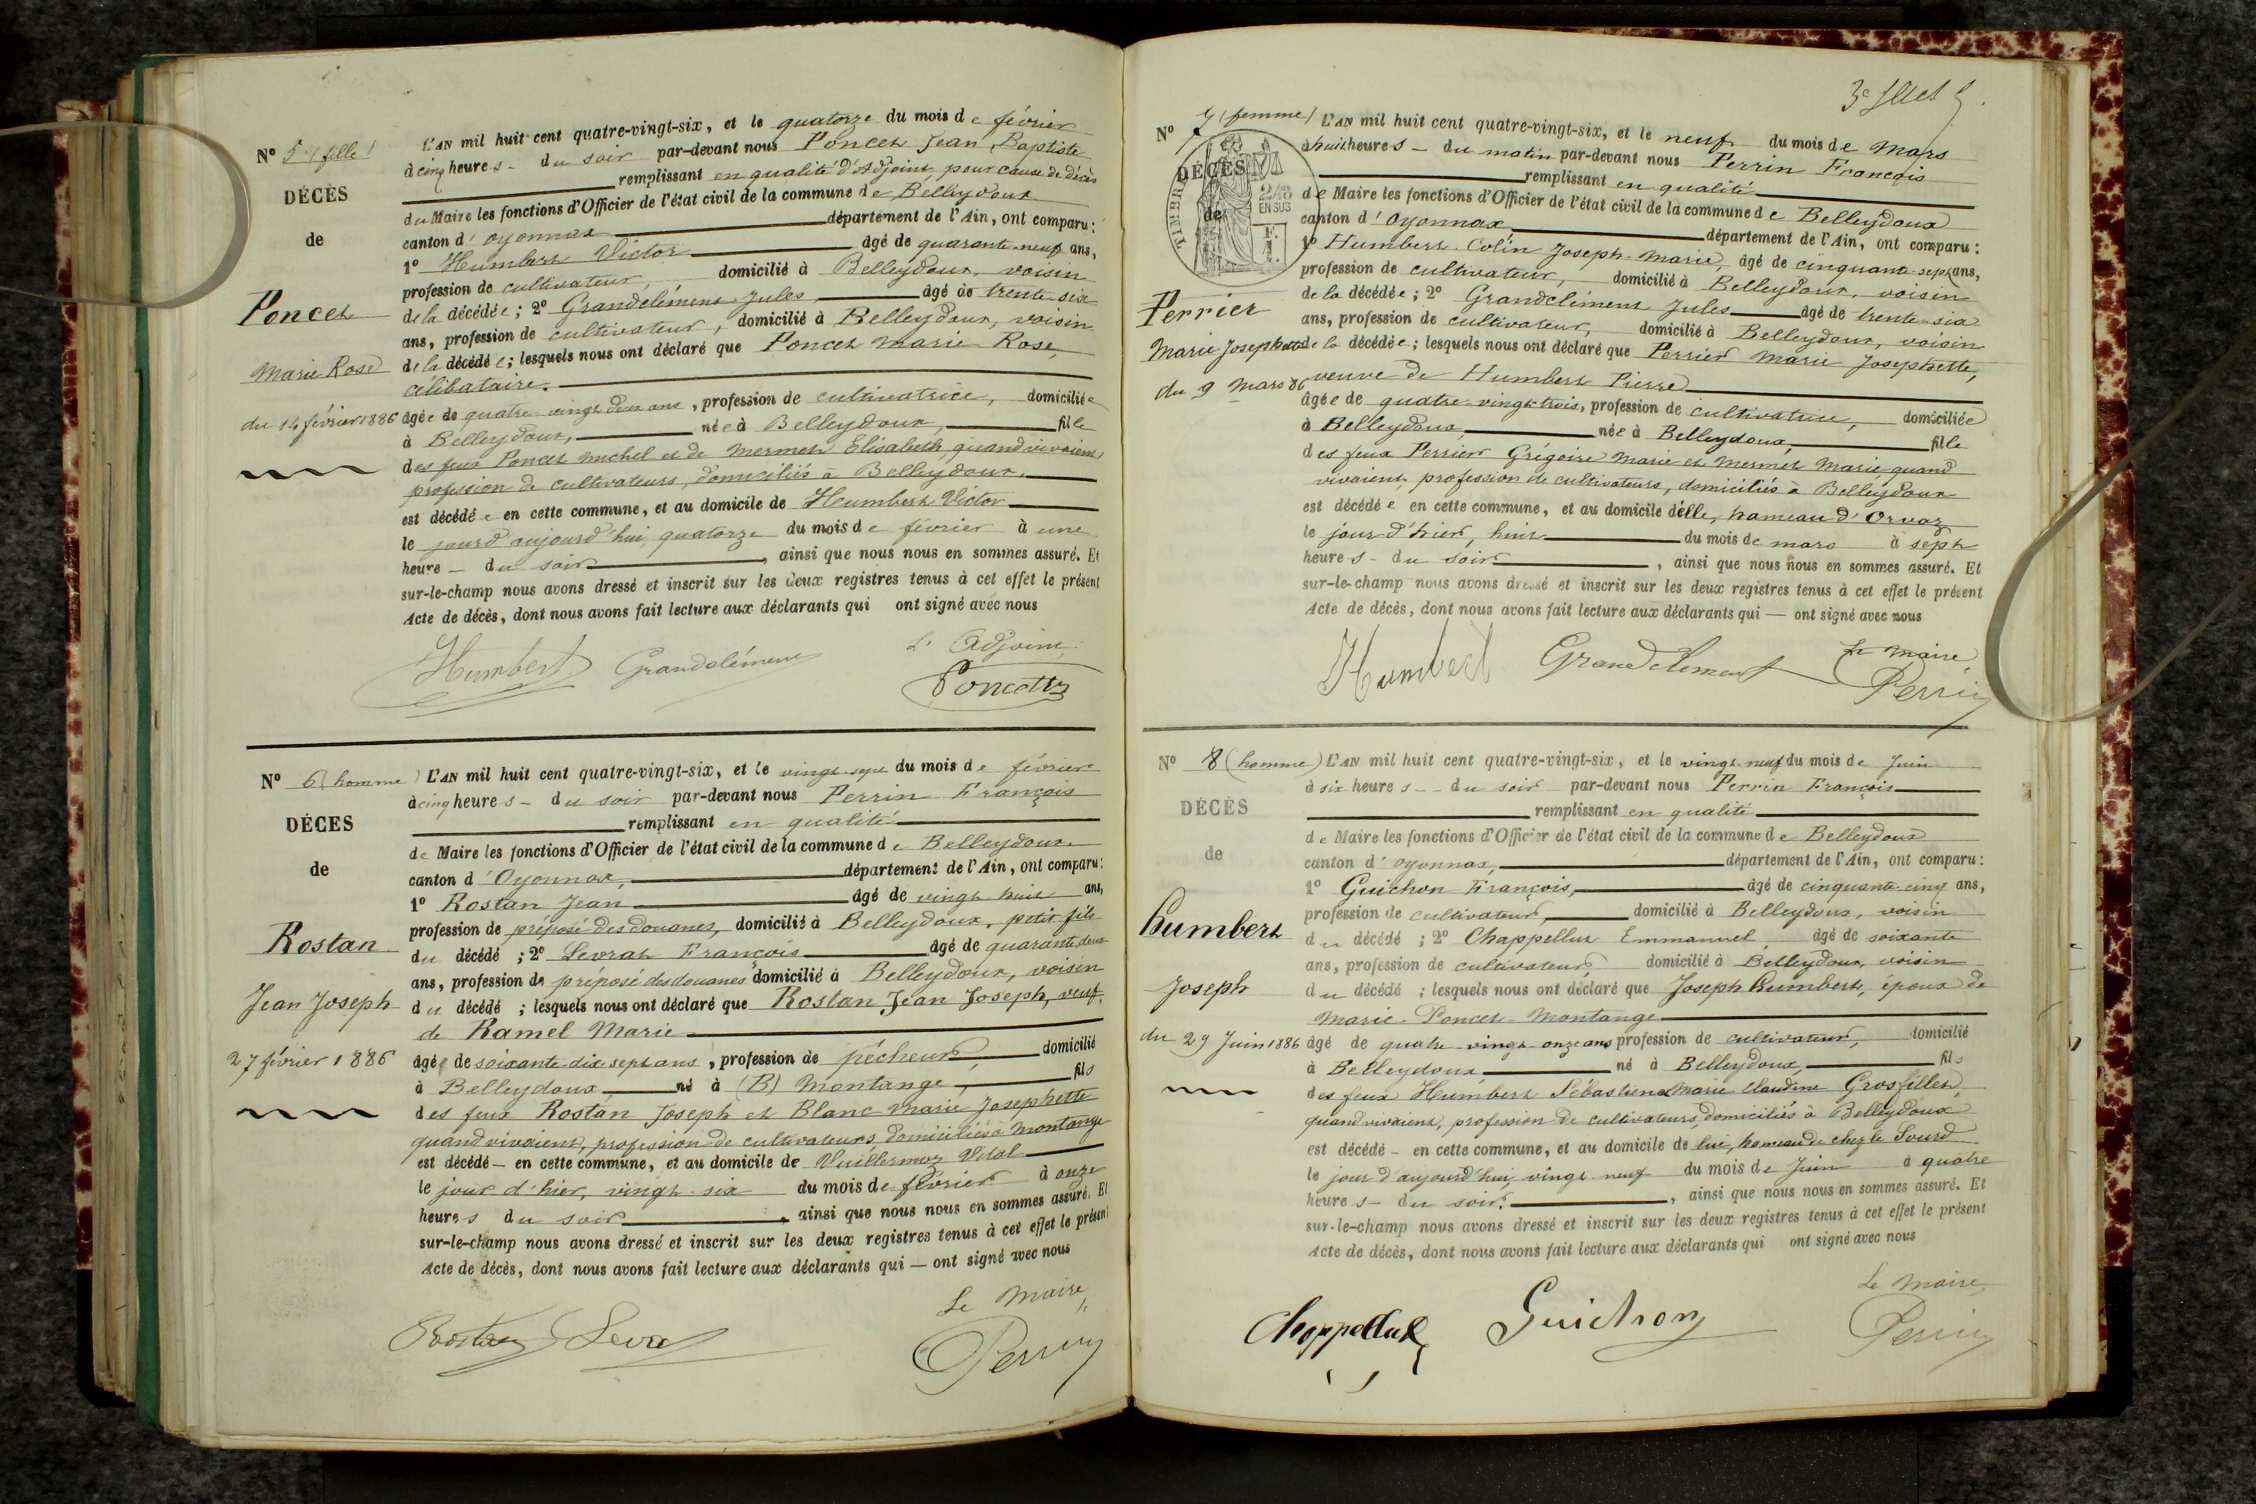 Nº 5 (fille)
DÉCÈS
de
Poncet
Marie Rose
du 14 février 1886
L'AN mil huit cent quatre-vingt-six, et le quatorze du mois de février
à cinq heures - du soir par-devant nous Poncet Jean Baptiste
remplissant en qualité d'Adjoint, pour cause de décès
du Maire les fonctions d'Officier de l'état civil de la commune de Belleydoux
canton d'oyonnax département de l'Ain, ont comparu:
1º Humbert Victor âgé de quarante-neuf ans,
profession de cultivateur, domicilié à Belleydoux, voisin
de la décédée; 2º Grandclément Jules, âgé de trente-six
ans, profession de cultivateur, domicilié à Belleydoux, voisin
de la décédée; lesquels nous ont déclaré que Poncet Marie Rose,
célibataire.
âgée de quatre-vingt deux ans, profession de cultivatrice, domiciliée
à Belleydoux, née à Belleydoux, fille
des feux Poncet Michel et de Mermet Elisabeth, quand vivaient,
profession de cultivateurs, domiciliés à Belleydoux.
est décédée en cette commune, et au domicile de Humbert Victor
le jourd'aujourd'hui, quatorze du mois de février à une
heure - du soir, ainsi que nous nous en sommes assuré. Et
sur-le-champ nous avons dressé et inscrit sur les deux registres tenus à cet effet le présent
Acte de décès, dont nous avons fait lecture aux déclarants qui ont signé avec nous
L'Adjoint,
Humbert Grandclément Poncet
Nº 6 (homme)
DÉCES
de
Rostan
Jean Joseph
27 février 1886
L'AN mil huit cent quatre-vingt-six, et le vingt-sept du mois de février
à cinq heures - du soir par-devant nous Perrin François
remplissant en qualité
de Maire les fonctions d'Officier de l'état civil de la commune de Belleydoux.
canton d'Oyonnax, département de l'Ain, ont comparu:
1º Rostan Jean âgé de vingt-huit ans,
profession de préposé des douanes, domicilié à Belleydoux, petit fils
du décédé; 2º Levrat François âgé de quarante-deux
ans, profession de préposé des douanes domicilié à Belleydoux, voisin
du décédé; lesquels nous ont déclaré que Rostan Jean Joseph, veuf,
de Ramel Marie
âgé de soixante-dix-sept ans, profession de pêcheur, domicilié
à Belleydoux, né à (B) Montange, fils
des feux Rostan Joseph et Blanc Marie Josephette
quand vivaient, profession de cultivateurs domiciliés à Montange
est décédé - en cette commune, et au domicile de Vuillermoz Vital
le jour d'hier, vingt-six du mois de février à onze
heures du soir, ainsi que nous nous en sommes assuré. Et
sur-le-champ nous avons dressé et inscrit sur les deux registres tenus à cet effet le présent
Acte de décès, dont nous avons fait lecture aux déclarants qui — ont signé avec nous
Le Maire,
Rostan Levra Perrin
Nº 7 (femme)
DÉCÈS
de
TIMBRE
2/10
EN SUS
Perrier
Marie Josephette
du 9 Mars 86
L'AN mil huit cent quatre-vingt-six, et le neuf du mois de Mars
à huit heures - du matin par-devant nous Perrin François
remplissant en qualité
de Maire les fonctions d'Officier de l'état civil de la commune de Belleydoux
canton d'Oyonnax, département de l'Ain, ont comparu:
1º Humbert Colin Joseph-Marie, âgé de cinquante-sept ans,
profession de cultivateur, domicilié à Belleydoux, voisin
de la décédée; 2º Grandclément Jules âgé de trente-six
ans, profession de cultivateur, domicilié à Belleydoux, voisin
de la décédée; lesquels nous ont déclaré que Perrier Marie Josephette,
veuve de Humbert Pierre
âgée de quatre-vingt-trois, profession de cultivatrice, domiciliée
à Belleydoux, née à Belleydoux, fille
des feux Perrier Grégoire Marie et Mermet Marie quand
vivaient, profession de cultivateurs, domiciliés à Belleydoux
est décédée en cette commune, et au domicile d'elle, hameau d'Orvaz
le jour d'hier, huit du mois de mars à sept
heures - du soir, ainsi que nous nous en sommes assuré. Et
sur-le-champ nous avons dressé et inscrit sur les deux registres tenus à cet effet le présent
Acte de décès, dont nous avons fait lecture aux déclarants qui — ont signé avec nous
Le Maire,
Humbert Grandclement Perrin
Nº 8 (homme)
DÉCÈS
de
humbert
Joseph
du 29 Juin 1886
L'AN mil huit cent quatre-vingt-six, et le vingt-neuf du mois de Juin
à six heures - du soir par-devant nous Perrin François
remplissant en qualité
de Maire les fonctions d'Officier de l'état civil de la commune de Belleydoux
canton d'oyonnax, département de l'Ain, ont comparu:
1º Guichon François, âgé de cinquante-cinq ans,
profession de cultivateur, domicilié à Belleydoux, voisin
du décédé; 2º Chappelluz Emmanuel, âgé de soixante
ans, profession de cultivateur, domicilié à Belleydoux, voisin
du décédé; lesquels nous ont déclaré que Joseph humbert, époux de
Marie Poncet-Montange
âgé de quatre-vingt-onze ans profession de cultivateur, domicilié
à Belleydoux né à Belleydoux, fils
des feux Humbert Sébastien et Marie Claudine Grosfillet,
quand vivaient, profession de cultivateurs, domiciliés à Belleydoux
est décédé - en cette commune, et au domicile de lui, hameau de chez le Sourd
le jour d'aujourd'hui, vingt-neuf du mois de Juin à quatre
heures - du soir, ainsi que nous nous en sommes assuré. Et
sur-le-champ nous avons dressé et inscrit sur les deux registres tenus à cet effet le présent
Acte de décès, dont nous avons fait lecture aux déclarants qui ont signé avec nous
Le Maire,
Guichon Perrin